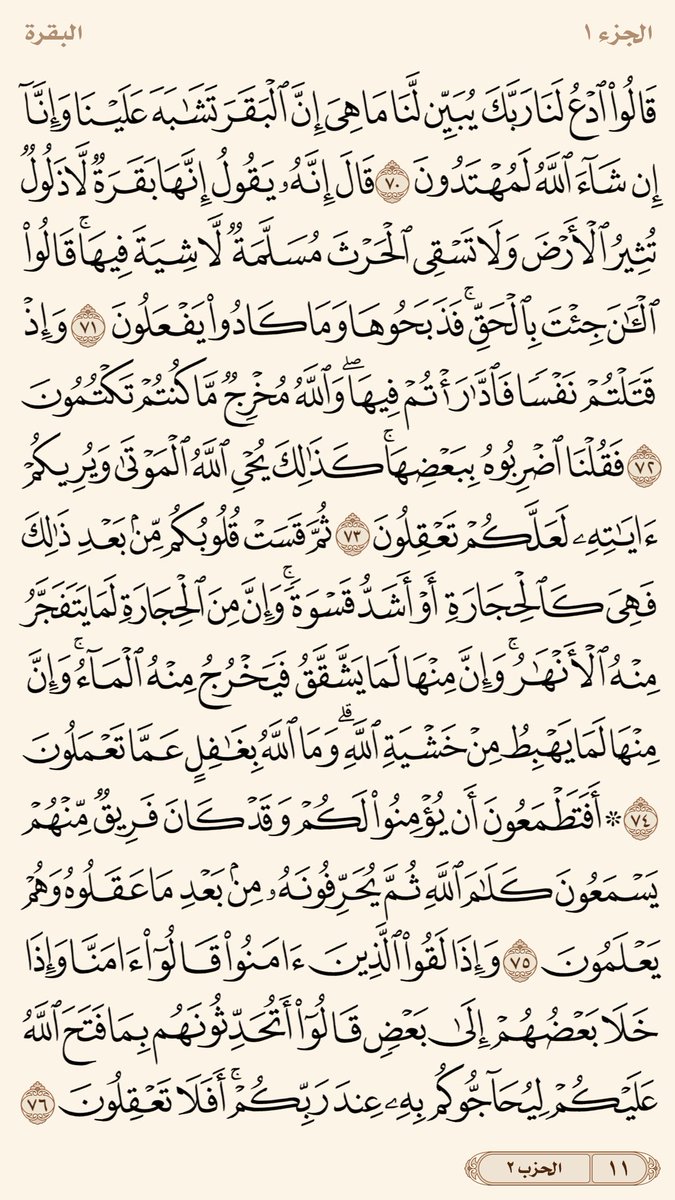 الجزء ١
البقرة
قَالُواْ ٱدۡعُ لَنَا رَبَّكَ يُبَيِّن لَّنَا مَا هِيَ إِنَّ ٱلۡبَقَرَ تَشَٰبَهَ عَلَيۡنَا وَإِنَّآ
إِن شَآءَ ٱللَّهُ لَمُهۡتَدُونَ ٧٠ قَالَ إِنَّهُۥ يَقُولُ إِنَّهَا بَقَرَةٞ لَّا ذَلُولٞ
تُثِيرُ ٱلۡأَرۡضَ وَلَا تَسۡقِي ٱلۡحَرۡثَ مُسَلَّمَةٞ لَّا شِيَةَ فِيهَاۚ قَالُواْ
ٱلۡـَٰٔنَ جِئۡتَ بِٱلۡحَقِّۚ فَذَبَحُوهَا وَمَا كَادُواْ يَفۡعَلُونَ ٧١ وَإِذۡ
قَتَلۡتُمۡ نَفۡسٗا فَٱدَّٰرَٰٔتُمۡ فِيهَاۖ وَٱللَّهُ مُخۡرِجٞ مَّا كُنتُمۡ تَكۡتُمُونَ
٧٢ فَقُلۡنَا ٱضۡرِبُوهُ بِبَعۡضِهَاۚ كَذَٰلِكَ يُحۡيِ ٱللَّهُ ٱلۡمَوۡتَىٰ وَيُرِيكُمۡ
ءَايَٰتِهِۦ لَعَلَّكُمۡ تَعۡقِلُونَ ٧٣ ثُمَّ قَسَتۡ قُلُوبُكُم مِّنۢ بَعۡدِ ذَٰلِكَ
فَهِيَ كَٱلۡحِجَارَةِ أَوۡ أَشَدُّ قَسۡوَةٗۚ وَإِنَّ مِنَ ٱلۡحِجَارَةِ لَمَا يَتَفَجَّرُ
مِنۡهُ ٱلۡأَنۡهَٰرُۚ وَإِنَّ مِنۡهَا لَمَا يَشَّقَّقُ فَيَخۡرُجُ مِنۡهُ ٱلۡمَآءُۚ وَإِنَّ
مِنۡهَا لَمَا يَهۡبِطُ مِنۡ خَشۡيَةِ ٱللَّهِۗ وَمَا ٱللَّهُ بِغَٰفِلٍ عَمَّا تَعۡمَلُونَ
٧٤ ۞ أَفَتَطۡمَعُونَ أَن يُؤۡمِنُواْ لَكُمۡ وَقَدۡ كَانَ فَرِيقٞ مِّنۡهُمۡ
يَسۡمَعُونَ كَلَٰمَ ٱللَّهِ ثُمَّ يُحَرِّفُونَهُۥ مِنۢ بَعۡدِ مَا عَقَلُوهُ وَهُمۡ
يَعۡلَمُونَ ٧٥ وَإِذَا لَقُواْ ٱلَّذِينَ ءَامَنُواْ قَالُوٓاْ ءَامَنَّا وَإِذَا
خَلَا بَعۡضُهُمۡ إِلَىٰ بَعۡضٖ قَالُوٓاْ أَتُحَدِّثُونَهُم بِمَا فَتَحَ ٱللَّهُ
عَلَيۡكُمۡ لِيُحَآجُّوكُم بِهِۦ عِندَ رَبِّكُمۡۚ أَفَلَا تَعۡقِلُونَ ٧٦
١١ الحزب ٢